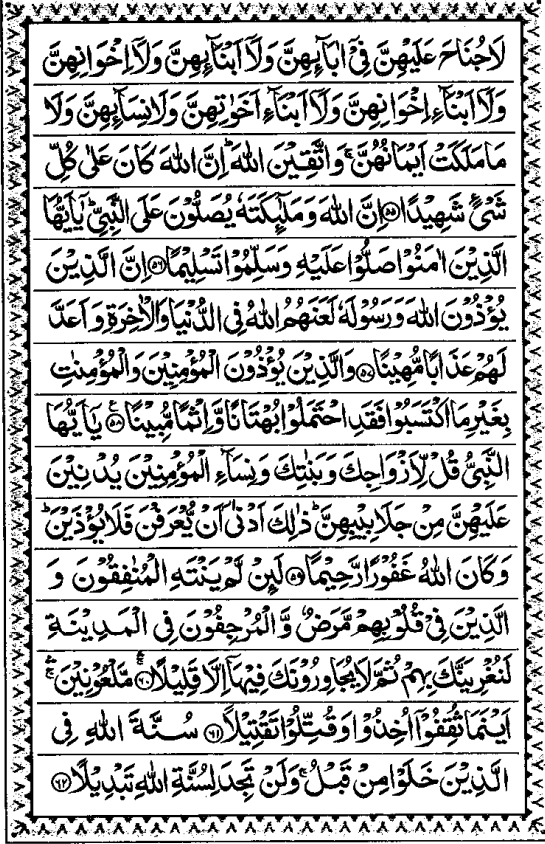 لَاجُنَاحَ عَلَیۡہِنَّ فِیۡۤ اٰبَآئِہِنَّ وَلَاۤ اَبۡنَآئِہِنَّ وَلَاۤ اِخۡوَانِہِنَّ
وَلَاۤ اَبۡنَآءِ اِخۡوَانِہِنَّ وَلَاۤ اَبۡنَآءِ اَخَوٰتِہِنَّ وَلَا نِسَآئِہِنَّ وَلَا
مَا مَلَکَتۡ اَیۡمَانُہُنَّ ۚ وَاتَّقِیۡنَ اللّٰہَ ؕ اِنَّ اللّٰہَ کَانَ عَلٰی کُلِّ
شَیۡءٍ شَہِیۡدًا ﴿۵۵﴾ اِنَّ اللّٰہَ وَمَلٰٓئِکَتَہٗ یُصَلُّوۡنَ عَلَی النَّبِیِّ ؕ یٰۤاَیُّہَا
الَّذِیۡنَ اٰمَنُوۡا صَلُّوۡا عَلَیۡہِ وَسَلِّمُوۡا تَسۡلِیۡمًا ﴿۵۶﴾ اِنَّ الَّذِیۡنَ
یُؤۡذُوۡنَ اللّٰہَ وَرَسُوۡلَہٗ لَعَنَہُمُ اللّٰہُ فِی الدُّنۡیَا وَالۡاٰخِرَۃِ وَاَعَدَّ
لَہُمۡ عَذَابًا مُّہِیۡنًا ﴿۵۷﴾ وَالَّذِیۡنَ یُؤۡذُوۡنَ الۡمُؤۡمِنِیۡنَ وَالۡمُؤۡمِنٰتِ
بِغَیۡرِ مَا اکۡتَسَبُوۡا فَقَدِ احۡتَمَلُوۡا بُہۡتَانًا وَّاِثۡمًا مُّبِیۡنًا ﴿۵۸﴾ یٰۤاَیُّہَا
النَّبِیُّ قُلۡ لِّاَزۡوَاجِکَ وَبَنٰتِکَ وَنِسَآءِ الۡمُؤۡمِنِیۡنَ یُدۡنِیۡنَ
عَلَیۡہِنَّ مِنۡ جَلَابِیۡبِہِنَّ ؕ ذٰلِکَ اَدۡنٰۤی اَنۡ یُّعۡرَفۡنَ فَلَا یُؤۡذَیۡنَ ؕ
وَکَانَ اللّٰہُ غَفُوۡرًا رَّحِیۡمًا ﴿۵۹﴾ لَئِنۡ لَّمۡ یَنۡتَہِ الۡمُنٰفِقُوۡنَ وَ
الَّذِیۡنَ فِیۡ قُلُوۡبِہِمۡ مَّرَضٌ وَّالۡمُرۡجِفُوۡنَ فِی الۡمَدِیۡنَۃِ
لَنُغۡرِیَنَّکَ بِہِمۡ ثُمَّ لَا یُجَاوِرُوۡنَکَ فِیۡہَاۤ اِلَّا قَلِیۡلًا ﴿۶۰﴾ مَّلۡعُوۡنِیۡنَ ۚۛ
اَیۡنَمَا ثُقِفُوۡۤا اُخِذُوۡا وَقُتِّلُوۡا تَقۡتِیۡلًا ﴿۶۱﴾ سُنَّۃَ اللّٰہِ فِی
الَّذِیۡنَ خَلَوۡا مِنۡ قَبۡلُ ۚ وَلَنۡ تَجِدَ لِسُنَّۃِ اللّٰہِ تَبۡدِیۡلًا ﴿۶۲﴾